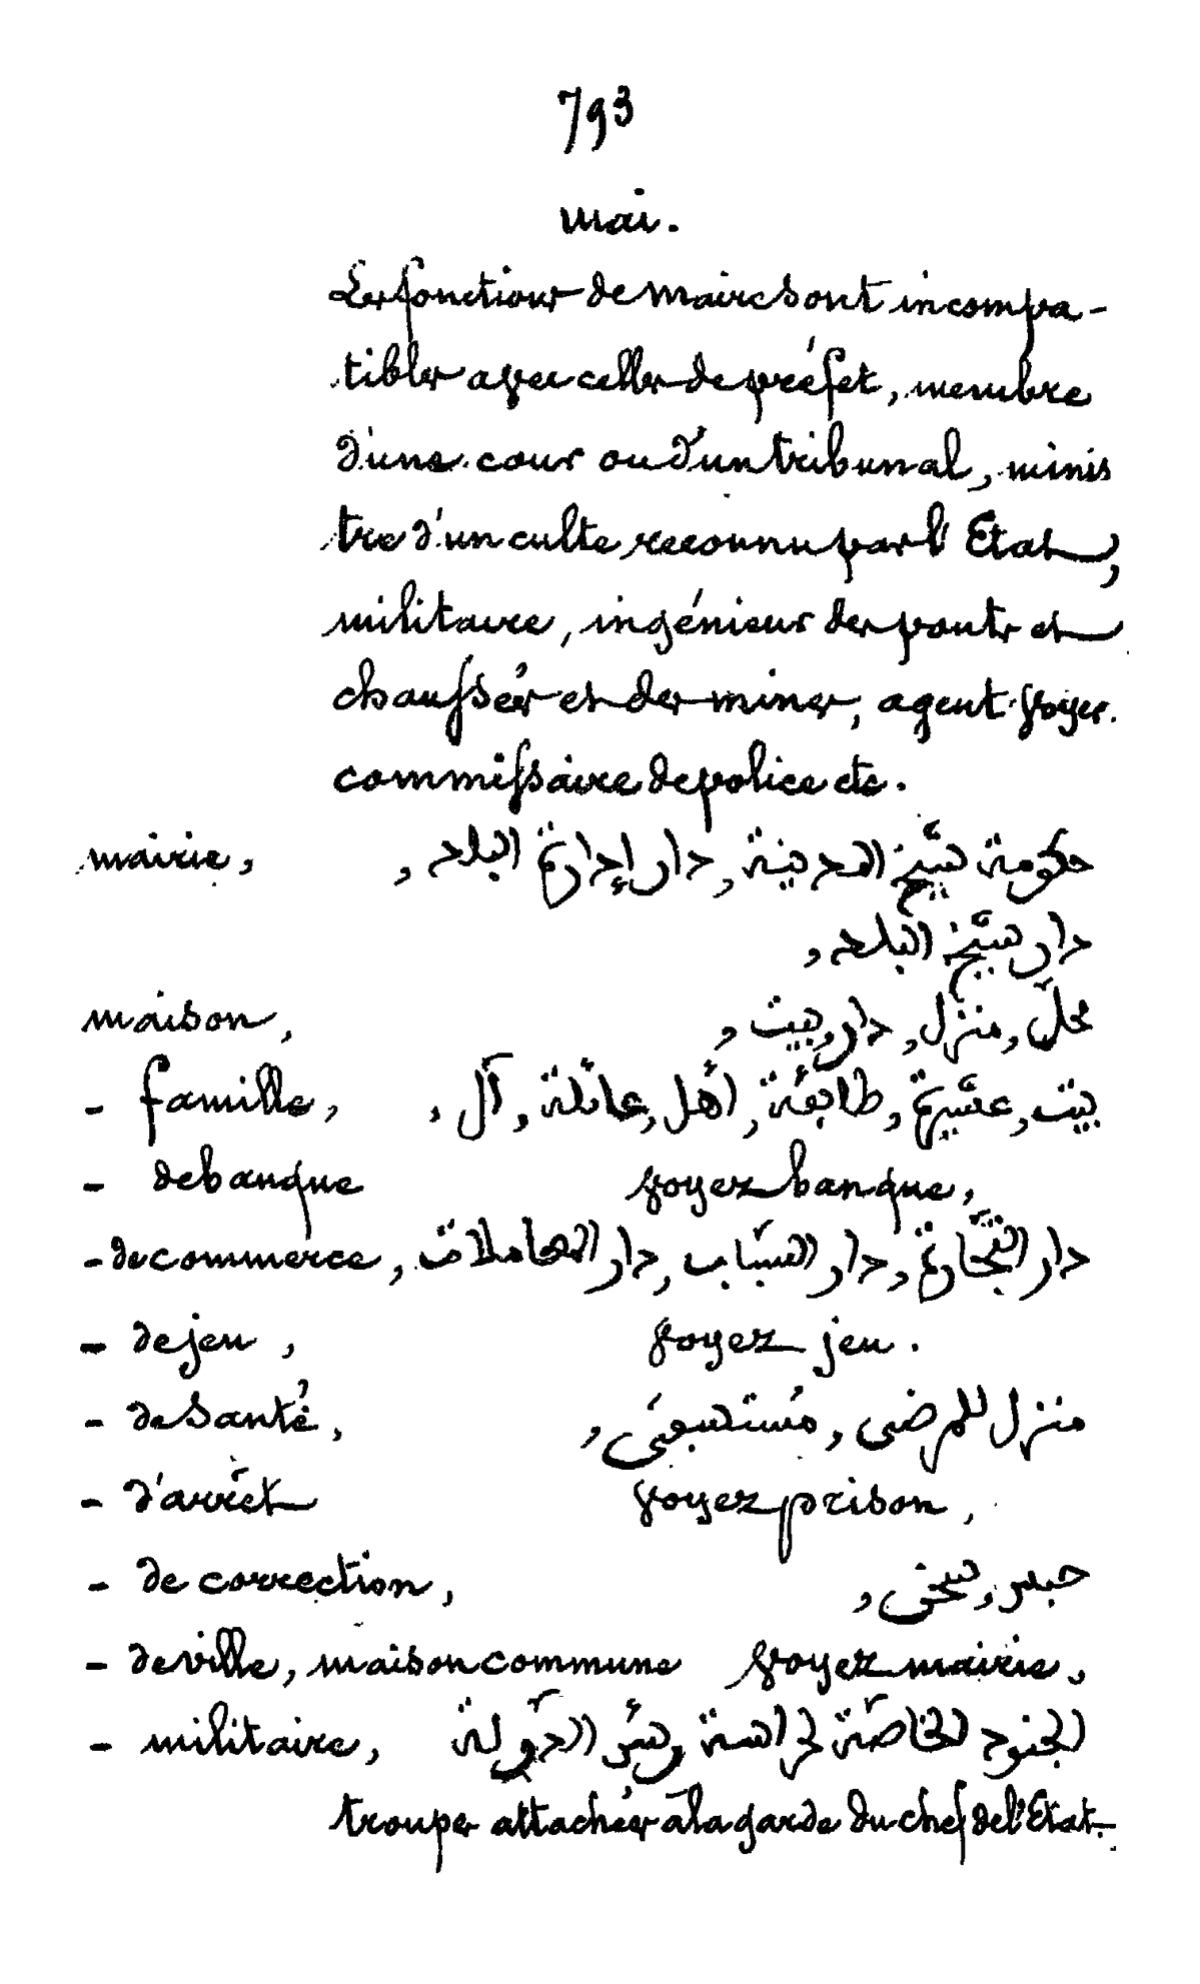 793
mai.
Les fonctions de maire sont incompa-
tibles avec celles de préfet, membre
d'une cour ou d'un tribunal, minis
tre d'un culte reconnu par l'Etat,
militaire, ingénieur des ponts et
chaussées et des mines, agent-voyer.
commissaire de police etc.
mairie, حكومة شيّخ المدينة, دار إدارة البلد,
دار شيّخ البلد,
maison, محلّ, منزل, دار, بيت,
- famille, بيت, عشيرة, طايفة, أهل, عائلة, آل,
- de banque voyez banque,
- de commerce, دار التجّارة, دار السبّاب, دار المعاملات
- de jeu, voyez jeu.
- de santé, منزل للمرضى, مستشفى,
- d'arrêt voyez prison,
- de correction, حبس, سجن,
- de ville, maison commune voyez mairie,
- militaire, الجنود الخاصّة لحراسة رئس الدّولة
troupes attachées à la garde du chef de l'Etat.